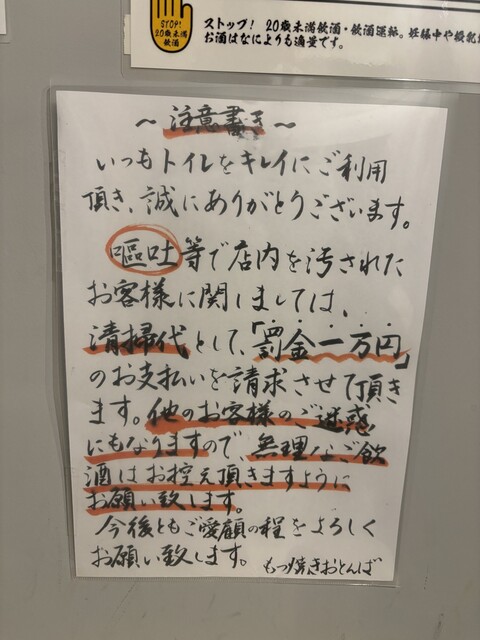 STOP!
20歳未満
飲酒
ストップ! 20歳未満飲酒・飲酒運転。妊娠中や授乳
お酒はなによりも適量です。
～注意書き～
いつもトイレをキレイにご利用
頂き、誠にありがとうございます。
嘔吐等で店内を汚された
お客様に関しましては、
清掃代として、「罰金一万円」
のお支払いを請求させて頂き
ます。他のお客様のご迷惑
にもなりますので、無理なご飲
酒はお控え頂きますように
お願い致します。
今後ともご愛顧の程をよろしく
お願い致します。 もつ焼きおとんば